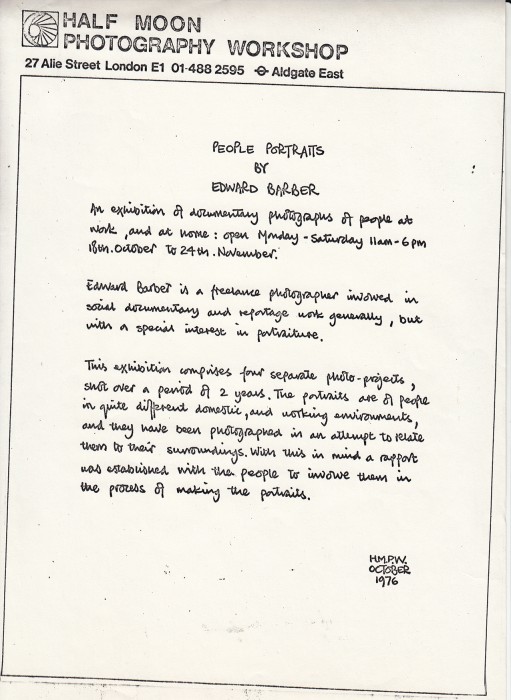 HALF MOON
PHOTOGRAPHY WORKSHOP
27 Alie Street London E1 01-488 2595 Aldgate East
PEOPLE PORTRAITS
BY
EDWARD BARBER
An exhibition of documentary photographs of people at
work, and at home: open Monday - Saturday 11am - 6pm
18th. October to 24th. November.
Edward Barber is a freelance photographer involved in
social documentary and reportage work generally, but
with a special interest in portraiture.
This exhibition comprises four separate photo-projects,
shot over a period of 2 years. The portraits are of people
in quite different domestic, and working environments,
and they have been photographed in an attempt to relate
them to their surroundings. With this in mind a rapport
was established with the people to involve them in
the process of making the portraits.
H.M.P.W.
OCTOBER
1976